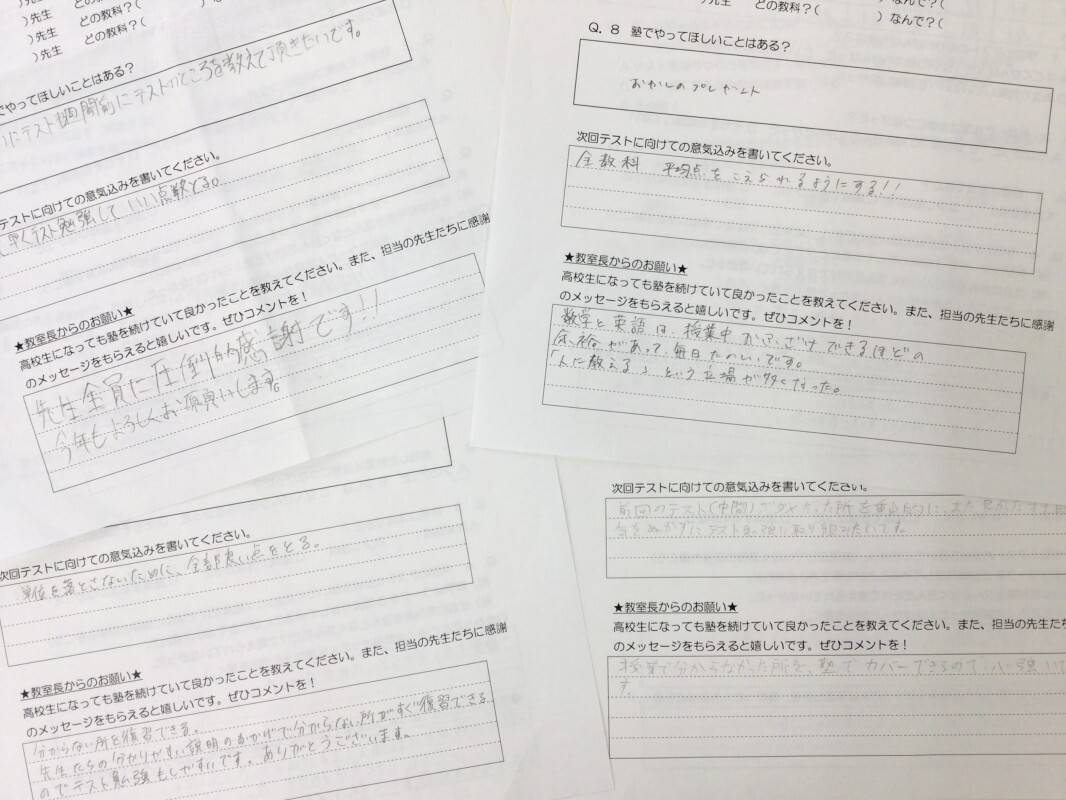 )先生 どの教科?(
)先生 どの教科?(
でやってほしいことはある?
にテスト1週間前にテストのところを教えて頂きたいです。
テストに向けての意気込みを書いてください。
早くテスト勉強して いい点数とる。
★教室長からのお願い★
高校生になっても塾を続けていて良かったことを教えてください。また、担当の先生たちに感謝
のメッセージをもらえると嬉しいです。ぜひコメントを!
先生全員に圧倒的感謝です!!
今年もよろしくお願いします。
)先生 どの教科?( ) なんで?(
Q.8 塾でやってほしいことはある?
おかしのプレゼント
次回テストに向けての意気込みを書いてください。
全教科 平均点をこえられるようにする!!
★教室長からのお願い★
高校生になっても塾を続けていて良かったことを教えてください。また、担当の先生たちに感謝
のメッセージをもらえると嬉しいです。ぜひコメントを!
数学と英語は、授業中おふざけできるほどの
余裕があって、毎日たのしいです。
「人に教える」という立場が多くなった。
次回テストに向けての意気込みを書いてください。
単位を落とさないために、全部良い点をとる。
★教室長からのお願い★
高校生になっても塾を続けていて良かったことを教えてください。また、担当の先生たちに感謝
のメッセージをもらえると嬉しいです。ぜひコメントを!
分からない所を復習できる。
先生たちの分かりやすい説明のおかげで分からない所がすぐ復習できる
のでテスト勉強もしやすいです。ありがとうございます。
次回テストに向けての意気込みを書いてください。
前回のテスト(中間)でダメだった所を重点的に、また
気をぬかずにテスト勉強に取り組みたいです。
★教室長からのお願い★
高校生になっても塾を続けていて良かったことを教えてください。また、担当の先生たちに感
のメッセージをもらえると嬉しいです。ぜひコメントを!
授業で分からなかった所を、塾でカバーできるので、心強いで
す